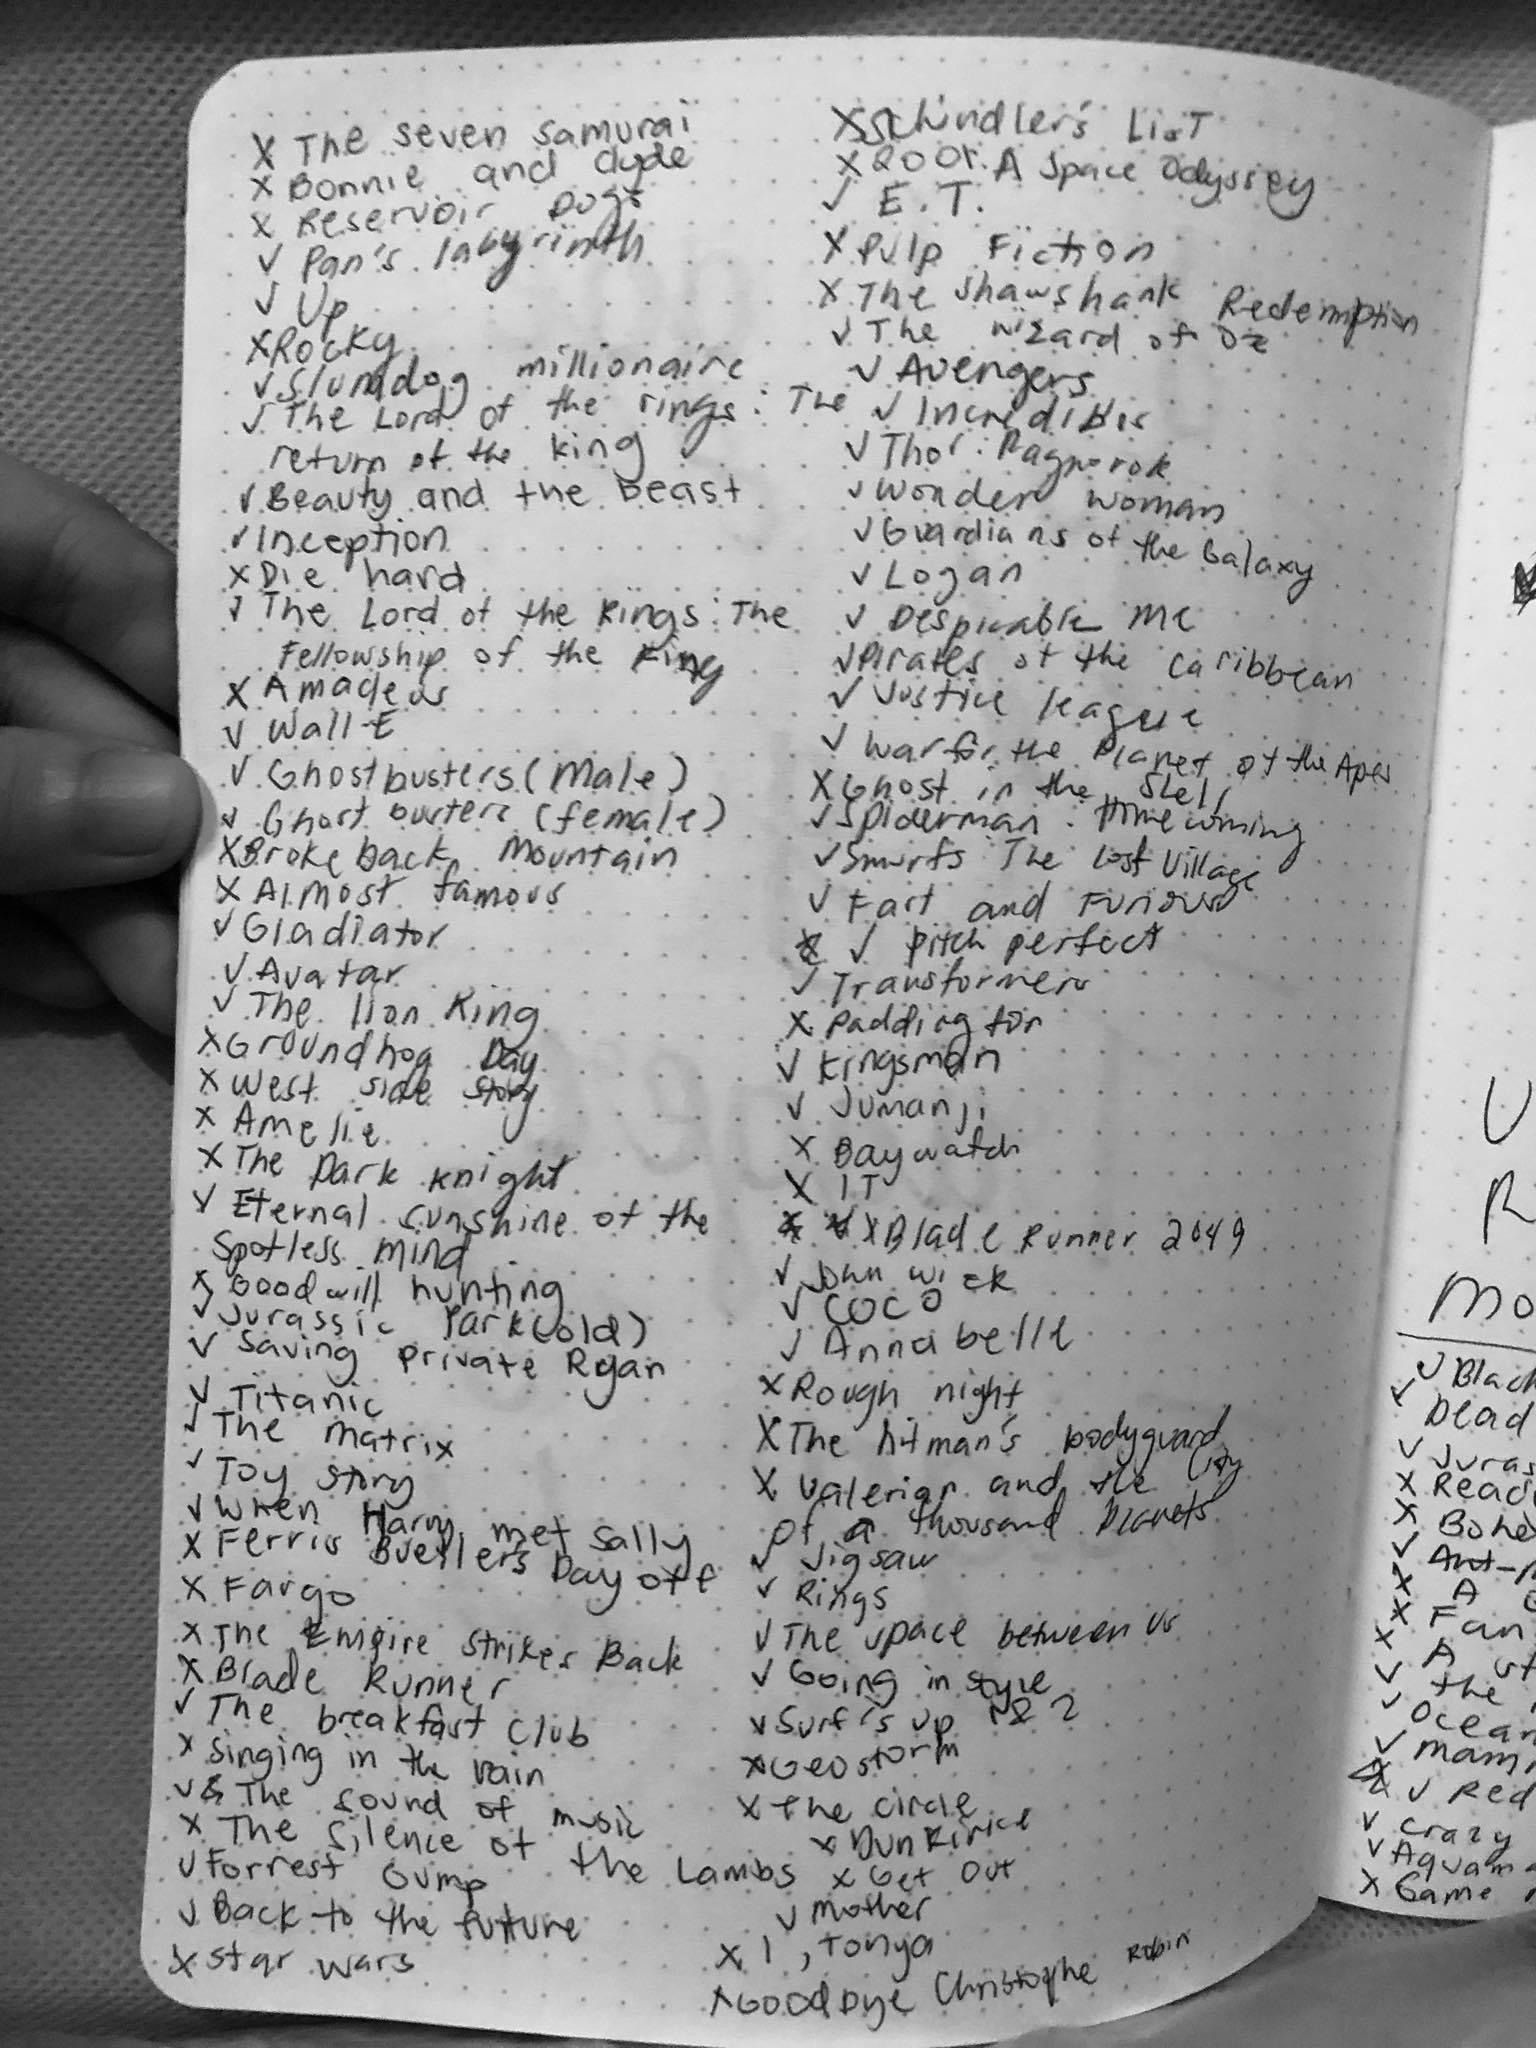 X The seven samurai
X Bonnie and Clyde
X Reservoir Dogs
✓ Pan's labyrinth
✓ Up
X Rocky
✓ Slumdog millionaire
✓ The Lord of the rings: The
return of the king
✓ Beauty and the beast
✓ Inception
X Die hard
✓ The Lord of the Rings: The
Fellowship of the King
X Amadeus
✓ Wall-E
✓ Ghostbusters (Male)
✓ Ghostbusters (female)
X Brokeback Mountain
X Almost famous
✓ Gladiator
✓ Avatar
✓ The lion King
X Groundhog Day
X West side story
X Amelie
X The Dark Knight
✓ Eternal sunshine of the
Spotless mind
X Good will hunting
✓ Jurassic Park (old)
✓ Saving private Ryan
✓ Titanic
✓ The matrix
✓ Toy story
✓ When Harry met Sally
X Ferris Buellers Day off
X Fargo
X The Empire Strikes Back
X Blade Runner
✓ The breakfast club
X Singing in the rain
✓ The sound of music
X The silence of the Lambs
✓ Forrest Gump
✓ Back to the future
X Star wars
X Schindler's List
X 2001: A Space Odyssey
✓ E.T.
X Pulp Fiction
X The Shawshank Redemption
✓ The wizard of Oz
✓ Avengers
✓ Incredibles
✓ Thor: Ragnorok
✓ Wonder woman
✓ Guardians of the Galaxy
✓ Logan
✓ Despicable me
✓ Pirates of the Caribbean
✓ Justice league
✓ War for the Planet of the Apes
X Ghost in the Shell
✓ Spiderman: Homecoming
✓ Smurfs The Lost Village
✓ Fast and Furious
✓ pitch perfect
✓ Transformers
X Paddington
✓ Kingsman
✓ Jumanji
X Baywatch
X IT
X Blade Runner 2049
✓ John wick
✓ COCO
✓ Annabelle
X Rough night
X The hitman's bodyguard
X Valerian and the City
of a thousand planets
✓ Jigsaw
✓ Rings
✓ The space between us
✓ Going in style
✓ Surf's up 1 & 2
X Geostorm
X the circle
X Dunkirk
X Get Out
✓ Mother
X I, Tonya
X Goodbye Christophe Robin
✓ Black
Dead
✓ Juras
X Read
X Bohe
✓ Ant-
X A
X Fan
X A
✓ the
✓ Ocean
✓ mam
✓ Red
✓ crazy
✓ Aquama
X Game